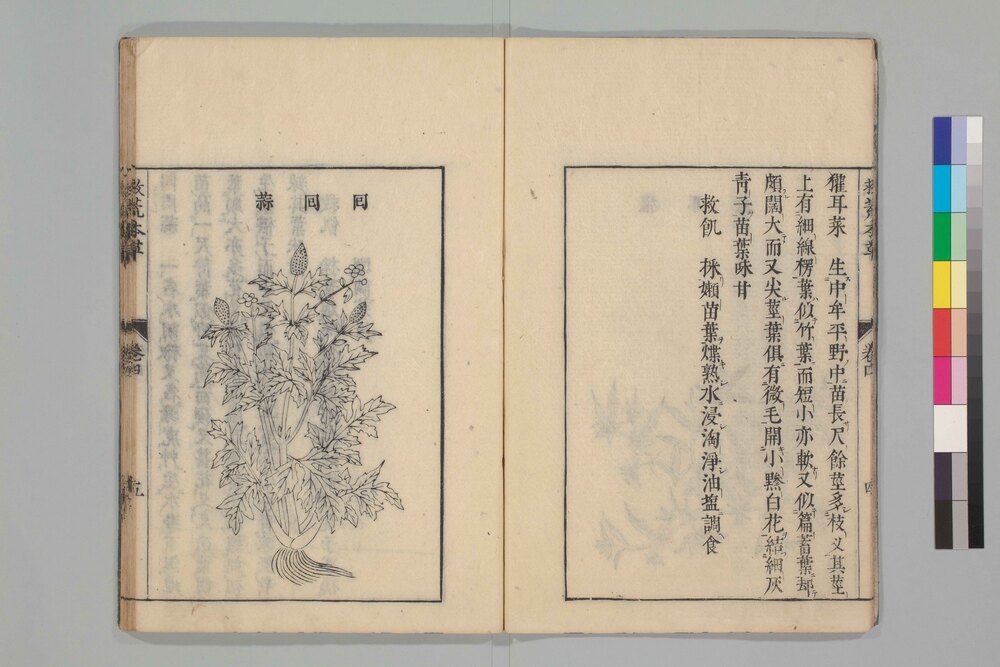 救荒本草 卷四 四
獾耳菜 生中牟平野中苗長尺餘莖多枝叉其莖
上有細線楞葉似竹葉而短小亦軟又似萹蓄葉却
頗闊大而又尖莖葉俱有微毛開小黲白花結細灰
青子苗葉味甘
救飢 採嫩苗葉煠熟水浸淘淨油塩調食
回回蒜
救荒本草 卷四 五